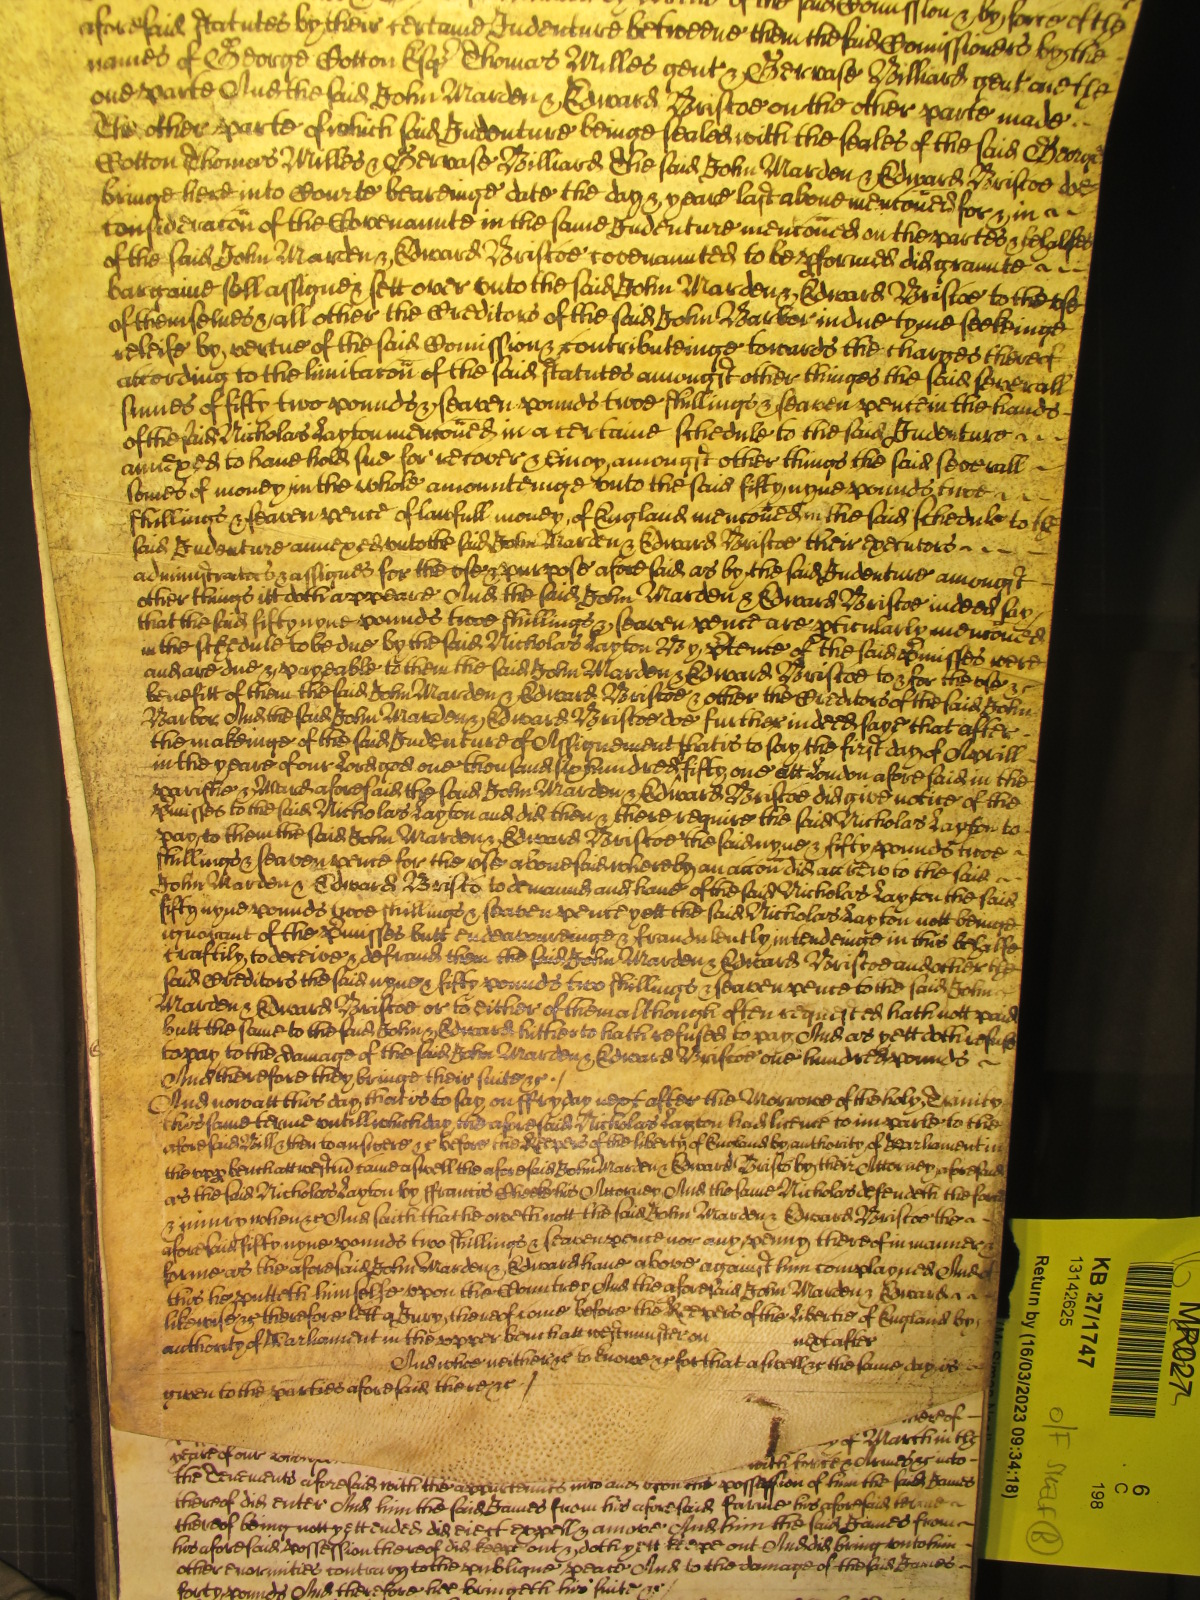 of the said Comission & by force of the
aforesaid Statutes by their certaine Indenture betweene them the said Comissioners by the
names of George Cotton Esqr Thomas Milles gent & Gervase Billiard gent one the
one parte And the said John Marden & Edward Briscoe on the other parte made
The other parte of which said Indenture beinge sealed with the seales of the said George
Cotton Thomas Milles & Gervase Billiard The said John Marden & Edward Briscoe doe
bringe here into Courte beareinge date the day & yeare last above mentoned for & in
consideracon of the Covenannte in the same Indenture mentoned on the partes & behalfes
of the said John Marden & Edward Briscoe covenannted to be pformed did graunte
bargaine sell assigne & sett over unto the said John Marden & Edward Briscoe to the use
of themselves & all other the Creditors of the said John Barbor in due tyme seekeinge
releife by vertue of the said Comission & contributeinge towards the charges thereof
according to the limitacon of the said Statutes amongst other thinges the said severall
sumes of fifty two pounds & seaven pounds twoe shillings & seaven pence in the hands
of the said Nicholas Layton mentoned in a certaine schedule to the said Indenture
annexed to have hold sue for recover & enioy amongst other things the said severall
somes of money in the whole amounteinge unto the said fifty nyne pounds twoe
shillings & seaven pence of lawfull money of England mentoned in the said schedule to the
said Indenture annexed unto the said John Marden & Edward Briscoe their executors
administrators & assignes for the use & purpose aforesaid as by the said Indenture amongst
other things itt doth appeare And the said John Marden & Edward Briscoe indeed say
that the said fifty nyne pounds twoe shillings & seaven pence are pticularly mentoned
in the schedule to be due by the said Nicholas Layton By ptence of the said pmisses were
and are due & payeable to them the said John Marden & Edward Briscoe to & for the use &
benefitt of them the said John Marden & Edward Briscoe & other the Creditors of the said John
Barbor And the said John Marden & Edward Briscoe doe further indeed saye that after
the makeinge of the said Indenture of Assignement that is to say the first day of Aprill
in the yeare of our Lord god one thousand six hundred fifty one att London aforesaid in the
parishe & Ward aforesaid the said John Marden & Edward Briscoe did give notice of the
pmisses to the said Nicholas Layton and did then & there require the said Nicholas Layton to
pay to them the said John Marden & Edward Briscoe the said nyne & fifty pounds twoe
shillings & seaven pence for the use abovesaid whereby an accon did accrew to the said
John Marden & Edward Brisco to demaund and have of the said Nicholas Layton the said
fifty nyne pounds twoe shillings & seaven pence yett the said Nicholas Layton nott beinge
ignorant of the pmisses butt endeavoureinge & fraudulently intendeinge in this behalfe
craftily to deceive & defraud them the said John Marden & Edward Briscoe and other the
said Creditors the said nyne & fifty pounds two shillings & seaven pence to the said John
Marden & Edward Briscoe or to either of them although often requested hath nott paid
butt the same to the said John & Edward hitherto hath refused to pay And as yett doth refuse
to pay to the damage of the said John Marden & Edward Briscoe one hundred pounds
And therefore they bringe their suite &c
And now att this day that is to say on ffryday next after the Morrowe of the holy Trinity
this same terme untill which day the aforesaid Nicholas Layton had licence to imparle to the
aforesaid Bill & then to answere &c before the Keepers of the liberty of England by authority of Parliament in
the upp bench att westm came aswell the aforesaid John Marden & Edward Brisco by their Attorney aforesaid
as the said Nicholas Layton by ffrancis Cheeke his Attorney And the same Nicholas defendeth the force
& iniury when &c And saith that he oweth nott the said John Marden & Edward Briscoe the
aforesaid fifty nyne pounds two shillings & seaven pence nor any penny thereof in manner &
forme as the aforesaid John Marden & Edward have above against him complayned And of
this he putteth himselfe upon the Countrey And the aforesaid John Marden & Edward
likewise &c therefore lett a Jury thereof come before the Keepers of the libertie of England by
authority of Parliament in the upper bench att westminster on next after
And whoe neither &c to knowe &c for that aswell &c the same day is
given to the parties aforesaid there &c
thereof
of March in the
yeare of our with force & Armes &c into
the Tenements aforesaid with the appurtenants into and upon the possession of him the said James
thereof did enter And him the said James from his aforesaid Farme his aforesaid terme
thereof being nott yett ended did eiect expell & amove And him the said James from
his aforesaid possession thereof did keepe out & doth yett keepe out And did bring unto him
other enormities contrary to the publique peace And to the damage of the said James
forty pounds And therefore hee bringeth his suite &c
MR027
6
C
198
KB 27/1747
13142625
Return by (16/03/2023 09:34:18)